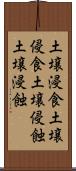 土壌浸食土壌
侵食土壌侵蝕
土壌浸蝕